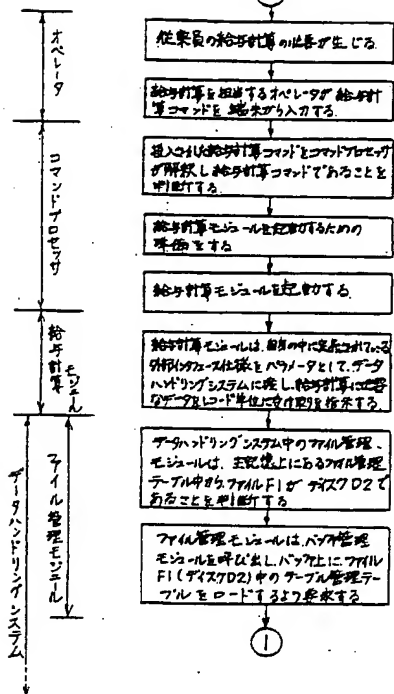 オペレータ
コマンドプロセッサ
給与計算モジュール
ファイル管理モジュール
データハンドリングシステム
従業員の給与計算の必要が生じる.
給与計算を担当するオペレータが給与計
算コマンドを端末から入力する.
投入された給与計算コマンドをコマンドプロセッサ
が解釈し給与計算コマンドであることを
判断する.
給与計算モジュールを起動するための
準備をする
給与計算モジュールを起動する.
給与計算モジュールは、自身の中に定義されている
外部インタフェース仕様をパラメータとして、データ
ハンドリングシステムに渡し、給与計算に必要
なデータをレコード単位に受け取りを指示する.
データハンドリングシステム中のファイル管理
モジュールは、主記憶上にあるファイル管理
テーブル中からファイルF1がディスクD2で
あることを判断する
ファイル管理モジュールは、バッファ管理
モジュールを呼び出し、バッファ上に、ファイル
F1(ディスクD2)中のテーブル管理テー
ブルをロードするよう要求する
1